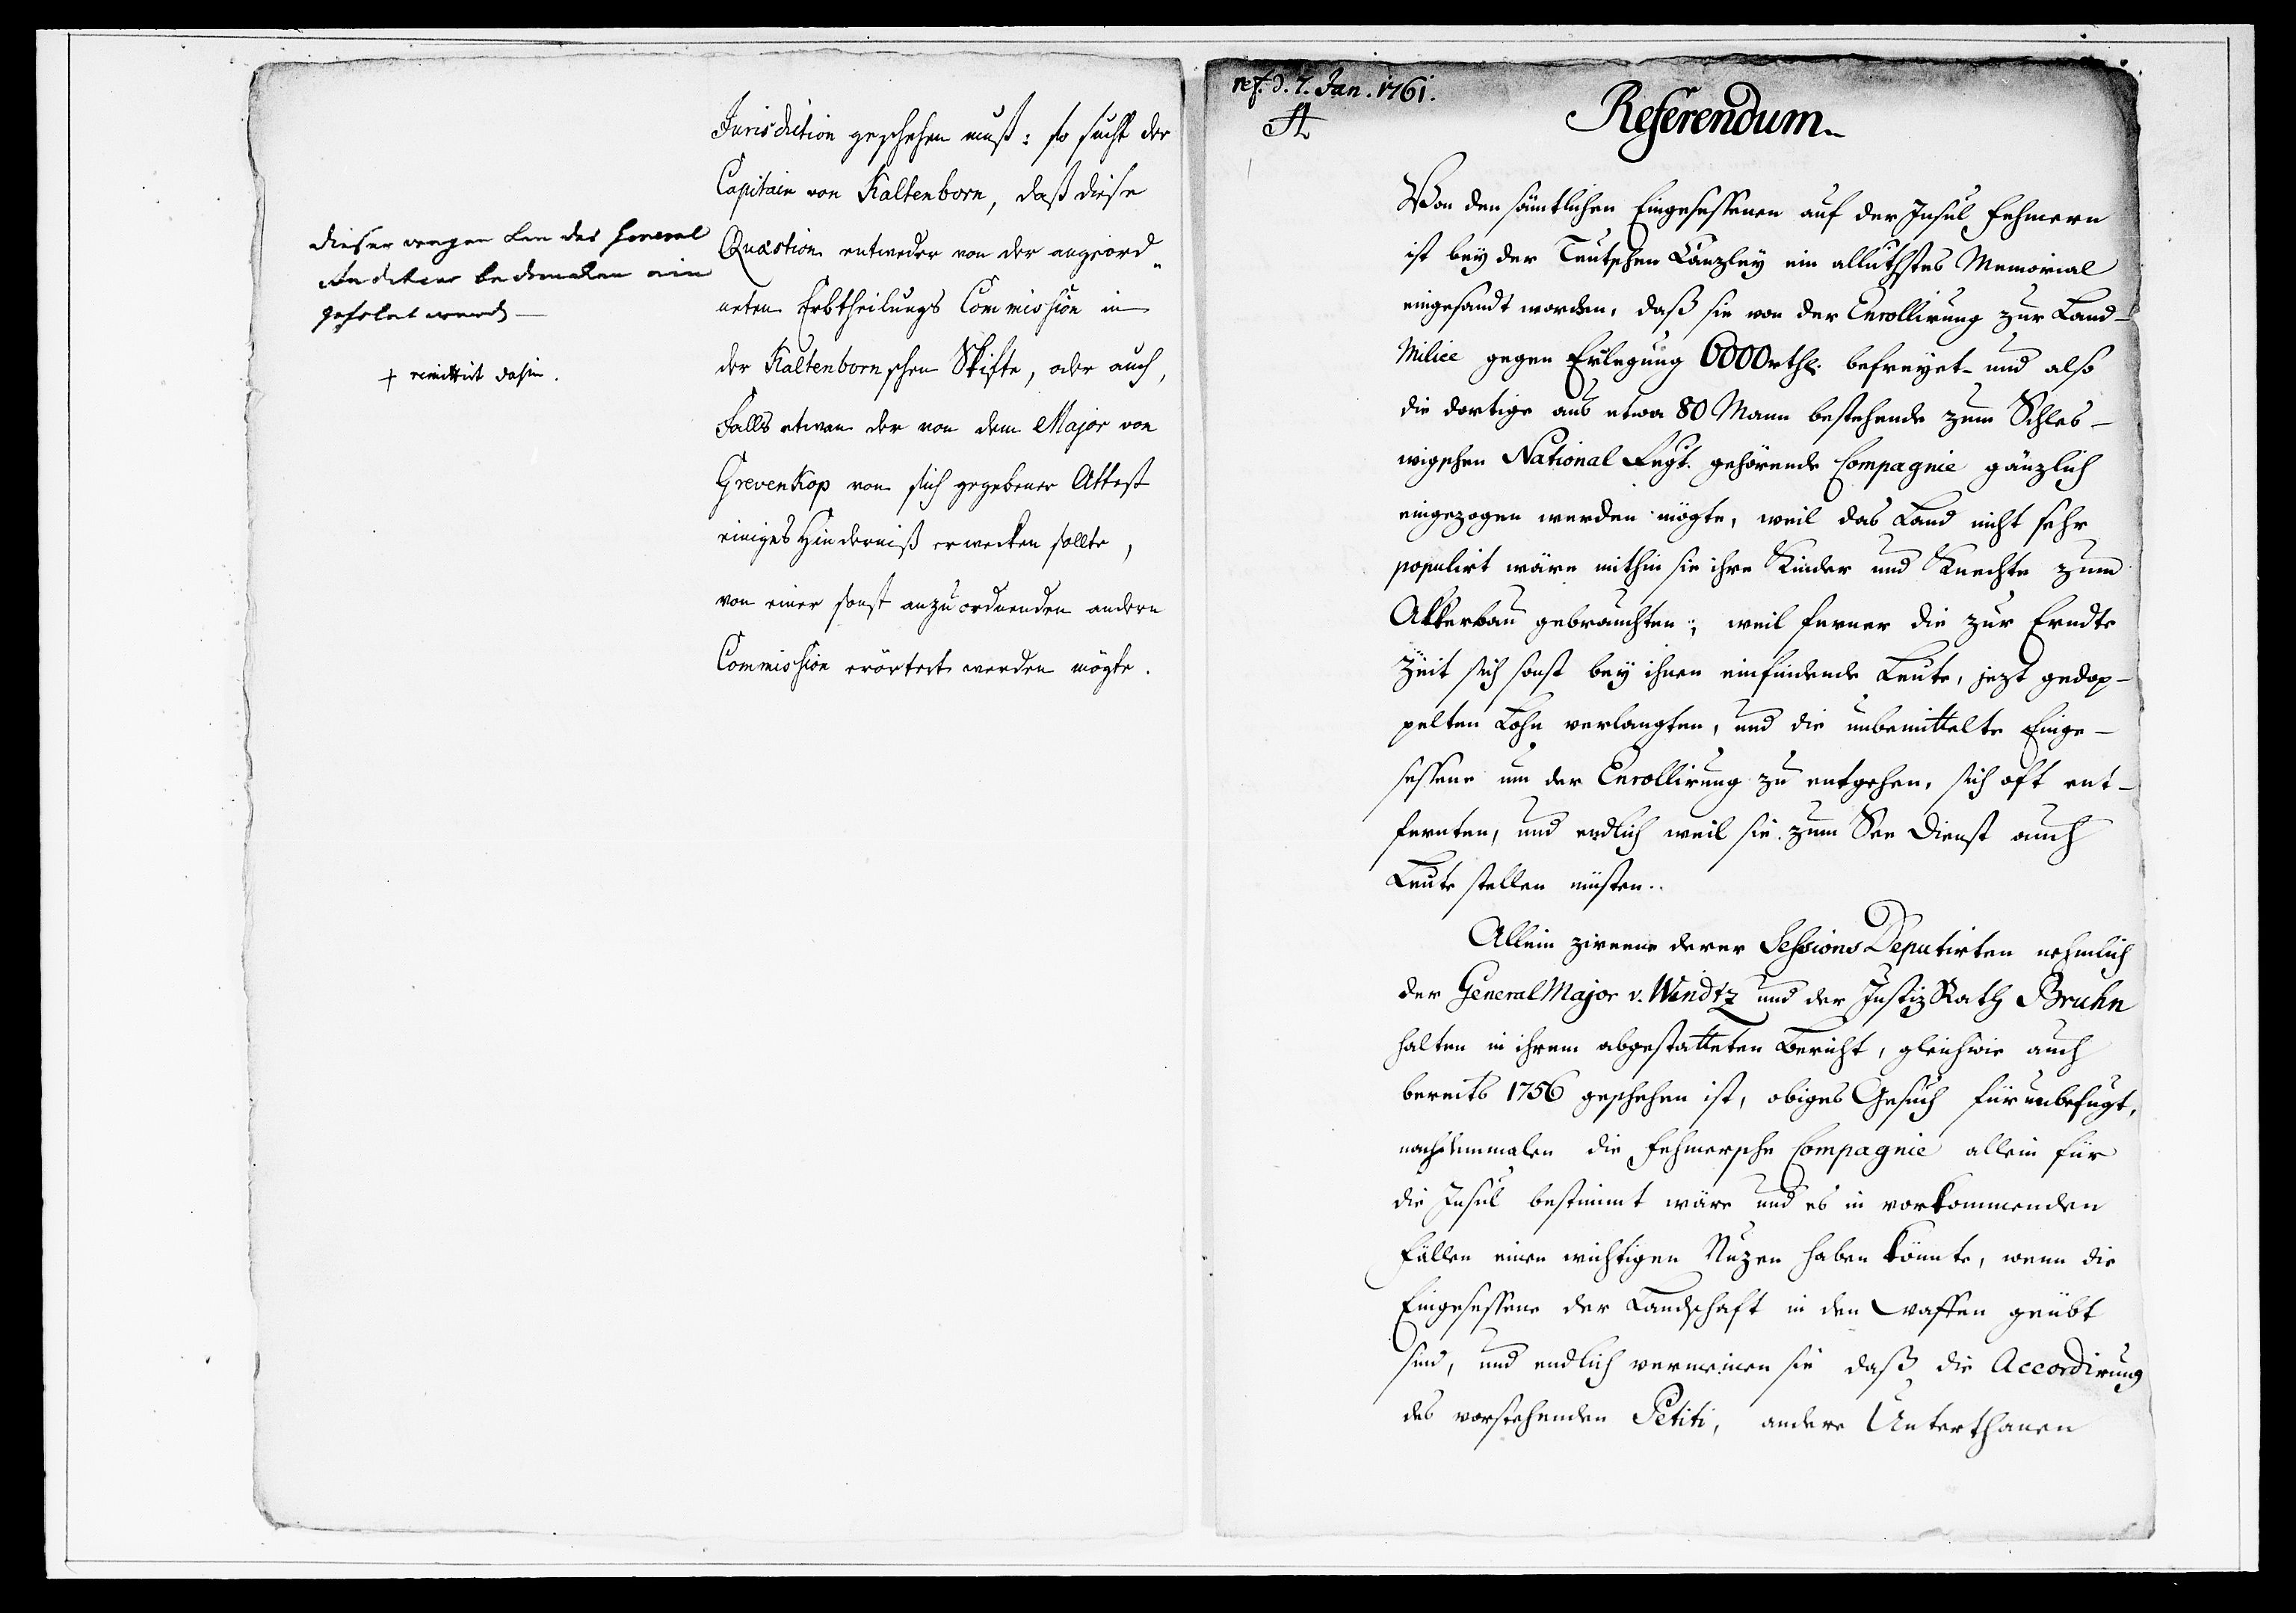 dieser wegen kan des General
Auditeur bedencken ein
geholet werd
+ remittirt dahin.
Jurisdiction geschehen muß: so sucht der
Capitain von Kaltenborn, daß diese
Quæstion entweder von der angeord„
neten Erbtheilungs Commission in
der Kaltenbornschen Skifte, oder auch,
Falls etwan der von dem Major von
Grevenkop von sich gegebener Attest
einiges Hinderniß erwecken sollte,
von einer sonst anzuordnenden andern
Commission erörtert werden mögte.
ref. d. 7. Jan. 1761.
Referendum.
Von den sämtlichen Eingesessenen auf der Insul Fehmern
ist bey der Teutschen Canzley ein alluthstes Memorial
eingesandt worden, daß sie von der Enrollirung zur Land-
Milice gegen Erlegung 6000 rthl. befreyet- und also
die dortige aus etwa 80 Mann bestehende zum Schles-
wigschen National Regt. gehörende Compagnie gänzlich
eingezogen werden mögte, weil das Land nicht sehr
populirt wäre mithin sie ihre Kinder und Knechte zum
Akkerbau gebrauchten; weil ferner die zur Erndte
Zeit sich sonst bey ihnen einfindende Leute, jezt gedop-
pelten Lohn verlangten, und die unbemittelte Einge-
sessene um der Enrollirung zu entgehen, sich oft ent-
fernten, und endlich weil sie zum See Dienst auch
Leute stellen müsten.
Allein zweene derer Sessions Deputirten nehmlich
der General Major v. Windtz und der Justiz Rath Bruhn
halten in ihrem abgestatteten Bericht, gleichwie auch
bereits 1756 geschehen ist, obiges Gesuch für unbefugt,
nachdemmalen die Fehmersche Compagnie allein für
die Insul bestimmt wäre und es in vorkommenden
Fällen einen wichtigen Nuzen haben könnte, wenn die
Eingesessene der Landschaft in den Waffen geübt
sind, und endlich vermeinen sie daß die Accordirung
des vorstehenden Petiti, andere Unterthanen